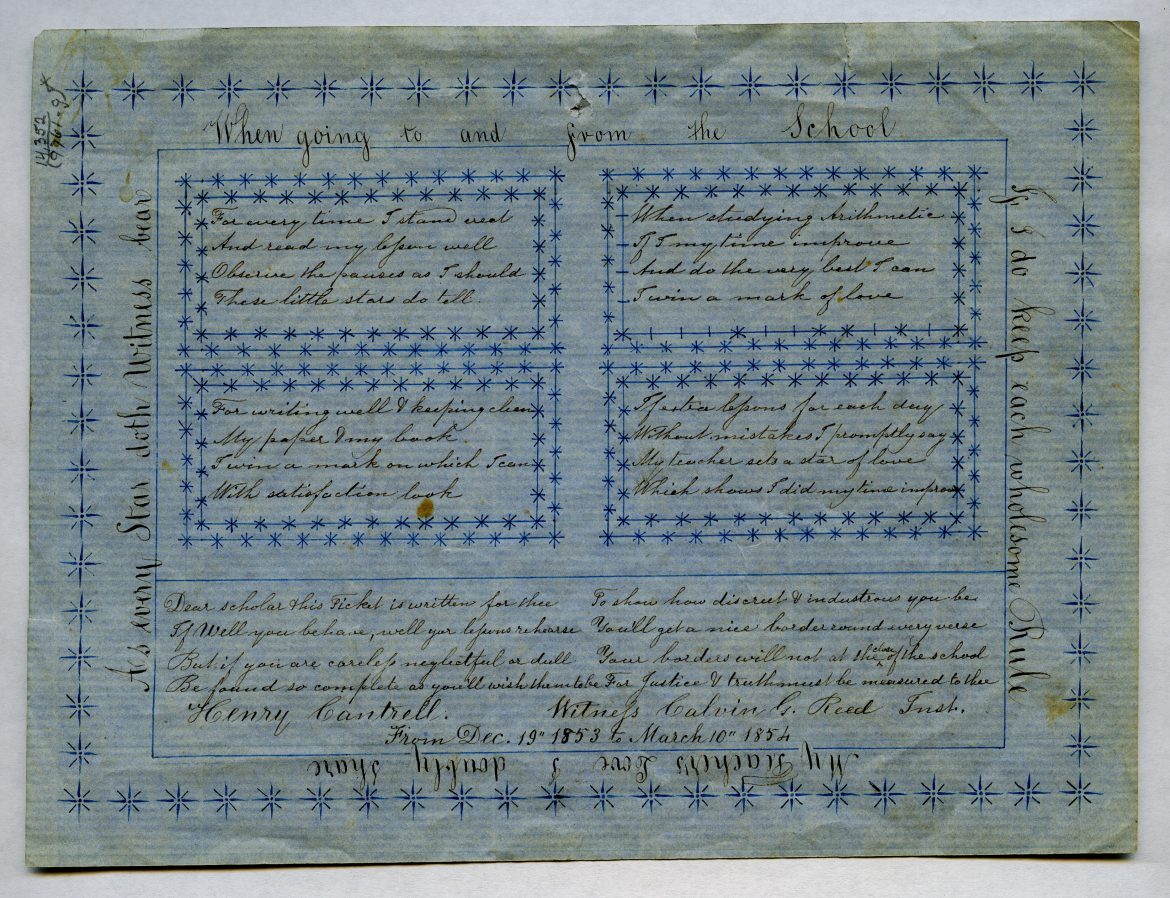 When going to and from the School
If I do keep each wholesome Rule
My Teacher's Love I doubly share
As every Star doth Witness bear
For every time I stand erect
And read my lesson well
Observe the pauses as I should
These little stars do tell.
When studying Arithmetic
If I my time improve
And do the very best I can
I win a mark of love
For writing well & keeping clean
My paper & my book.
I win a mark on which I can
With satisfaction look
If extra lessons for each day
Without mistakes I promptly say
My teacher sets a star of love
Which shows I did my time improve
Dear scholar this Ticket is written for thee
To show how discreet & industrous you be
If Well you behave, well your lessons rehearse
You'll get a nice border round every verse
But if you are careless neglectful or dull
Your borders will not at the close of the school
Be found so complete as you'll wish them to be
For Justice & truth must be measured to thee
Henry Cantrell.
Witness Calvin G. Reed Inst.
From Dec. 19" 1853 to March 10" 1854
14,352